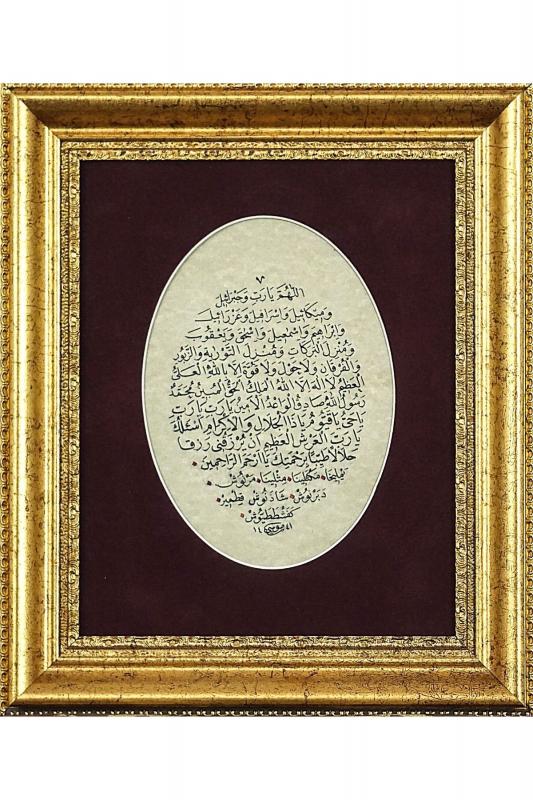 ٧
اللهم يا رب وجبرائيل
وميكائيل واسرافيل وعزرائيل
وابراهيم واسمعيل واسحق ويعقوب
ومنزل البركات ومنزل التورية والزبور
والفرقان ولا حول ولا قوة الا بالله العلى
العظيم لا اله الا الله الملك الحق المبين محمد
رسول الله صادق الوعد الامين يا رب يا رب
يا حى يا قيوم يا ذا الجلال والاكرام اسئلك
يا رب العرش العظيم ان ترزقنى رزقا
حلالا طيبا برحمتك يا ارحم الراحمين
يمليخا مكثلينا مثلينا مرنوش
دبرنوش شاذنوش قطمير
كفشططيوش